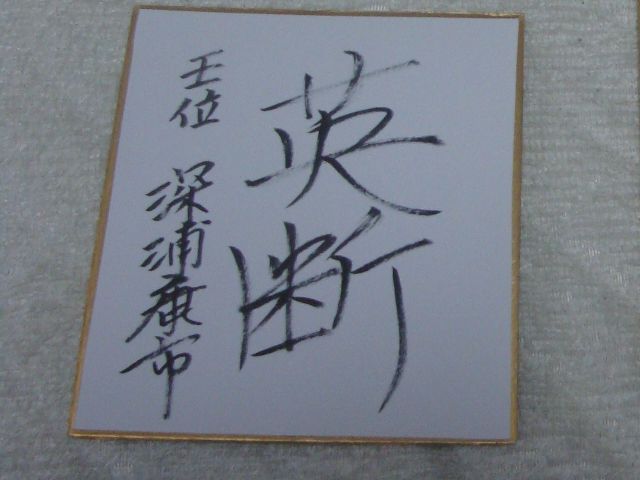 英断
王位 深浦康市